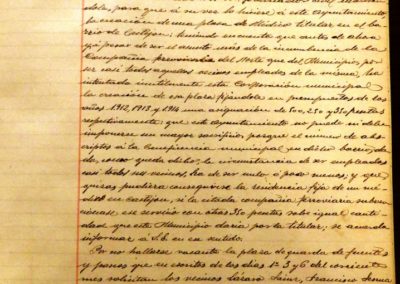 dola, para que á su vez lo hiciera á este Ayuntamiento
la creación de una plaza de Médico titular en el ba-
rrio de Castejon: teniendo en cuenta que antes de ahora
y á pesar de ser el asunto más de la incumbencia de la
Compañia ferroviaria del Norte que del Municipio, por
ser casi todos aquellos vecinos empleados de la misma, ha
intentado inutilmente esta Corporación municipal
la creación de esa plaza fijándola en presupuestos de los
años 1912, 1913 y 1914 una asignación de 500, 250 y 350 pesetas
respectivamente: que este Ayuntamiento no puede ni debe
imponerse un mayor sacrificio, porque el número de abs-
criptos á la Beneficencia municipal en dicho barrio, da-
da, como queda dicho, la circunstancia de ser empleados
casi todos sus vecinos, ha de ser nulo ó poco menos; y que
quizas pudiera conseguirse la residencia fija de un mé-
dico en Castejon, si la citada compañia ferroviaria subven-
cionase, ese servicio con otras 350 pesetas valor igual canti-
dad que este Municipio daria por la titular, se acuerda
informar á S.S. en ese sentido.
Por no hallarse vacante la plaza de guarda de fuentes
y paseos que en escritos de los dias 1º 3 y 6 del corriente
mes solicitan los vecinos Lázaro Sainz, Francisco